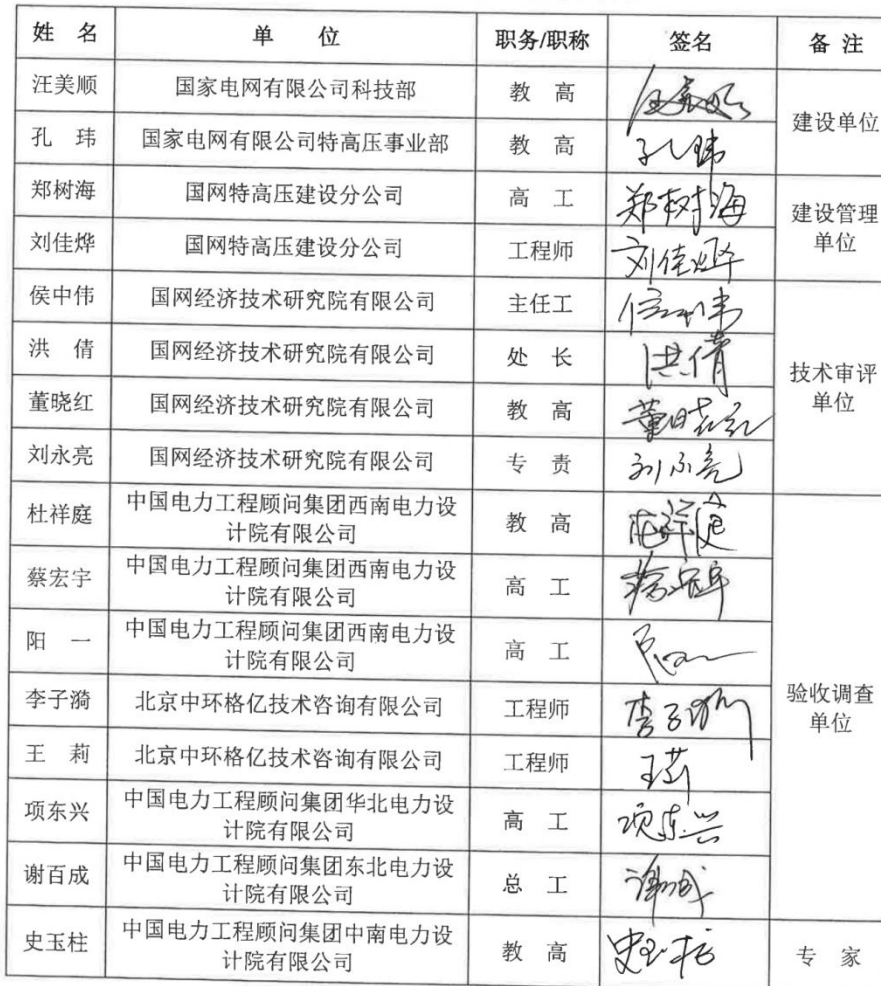 姓 名 单 位 职务/职称 签名 备 注
汪美顺 国家电网有限公司科技部 教 高 汪美顺 建设单位
孔 玮 国家电网有限公司特高压事业部 教 高 孔玮
郑树海 国网特高压建设分公司 高 工 郑树海 建设管理
单位
刘佳烨 国网特高压建设分公司 工程师 刘佳烨
侯中伟 国网经济技术研究院有限公司 主任工 侯中伟 技术审评
单位
洪 倩 国网经济技术研究院有限公司 处 长 洪倩
董晓红 国网经济技术研究院有限公司 教 高 董晓红
刘永亮 国网经济技术研究院有限公司 专 责 刘永亮
杜祥庭 中国电力工程顾问集团西南电力设
计院有限公司 教 高 杜祥庭 验收调查
单位
蔡宏宇 中国电力工程顾问集团西南电力设
计院有限公司 高 工 蔡宏宇
阳 一 中国电力工程顾问集团西南电力设
计院有限公司 高 工
李子漪 北京中环格亿技术咨询有限公司 工程师 李子漪
王 莉 北京中环格亿技术咨询有限公司 工程师 王莉
项东兴 中国电力工程顾问集团华北电力设
计院有限公司 高 工 项东兴
谢百成 中国电力工程顾问集团东北电力设
计院有限公司 总 工 谢百成
史玉柱 中国电力工程顾问集团中南电力设
计院有限公司 教 高 史玉柱 专 家